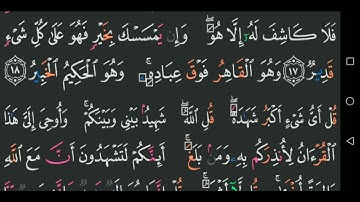 فَلَا كَاشِفَ لَهُۥٓ إِلَّا هُوَ ۖ وَإِن يَمْسَسْكَ بِخَيْرٍ فَهُوَ عَلَىٰ كُلِّ شَىْءٍ
قَدِيرٌ ١٧ وَهُوَ ٱلْقَاهِرُ فَوْقَ عِبَادِهِۦ ۚ وَهُوَ ٱلْحَكِيمُ ٱلْخَبِيرُ ١٨
قُلْ أَىُّ شَىْءٍ أَكْبَرُ شَهَٰدَةً ۖ قُلِ ٱللَّهُ ۖ شَهِيدٌۢ بَيْنِى وَبَيْنَكُمْ ۚ وَأُوحِىَ إِلَىَّ هَٰذَا
ٱلْقُرْءَانُ لِأُنذِرَكُم بِهِۦ وَمَنۢ بَلَغَ ۚ أَئِنَّكُمْ لَتَشْهَدُونَ أَنَّ مَعَ ٱللَّهِ